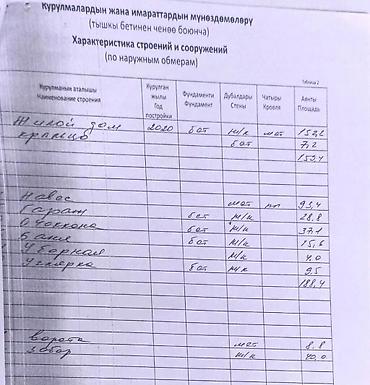 Курулмалардын жана имараттардын мүнөздөмөлөрү
(тышкы бетинен ченөө боюнча)
Характеристика строений и сооружений
(по наружным обмерам)
Таблица 2
Курулманын аталышы Наименование строения Курулган жылы Год постройки Фундаменти Фундамент Дубалдары Стены Чатыры Кровля Аянты Площадь
Жилой дом 2020 бет м/к мет
крыльцо бет 7,2
Навес мет 93,4
Гараж бет м/к 28.8
бет м/к 37.1
Баня бет м/к 15,6
Уборная м/к 4.0
бет м/к 9.5
188,4
ворота мет 8.8
забор м/к 40,0